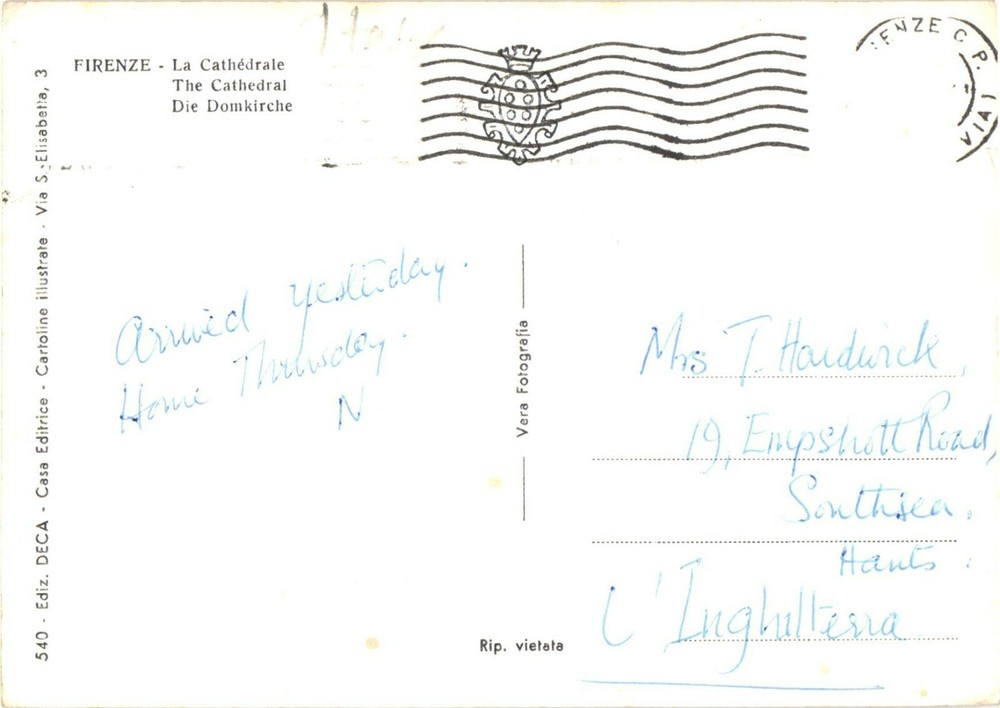 FIRENZE - La Cathédrale
The Cathedral
Die Domkirche
ENZE C.P.
VIA
540 - Ediz. DECA - Casa Editrice - Cartoline illustrate - Via S. Elisabetta, 3
Arrived yesterday.
Home Thursday.
N
Vera Fotografia
Mrs T. Hardwick,
19, Empshott Road,
Southsea,
Hants.
L'Inghilterra
Rip. vietata